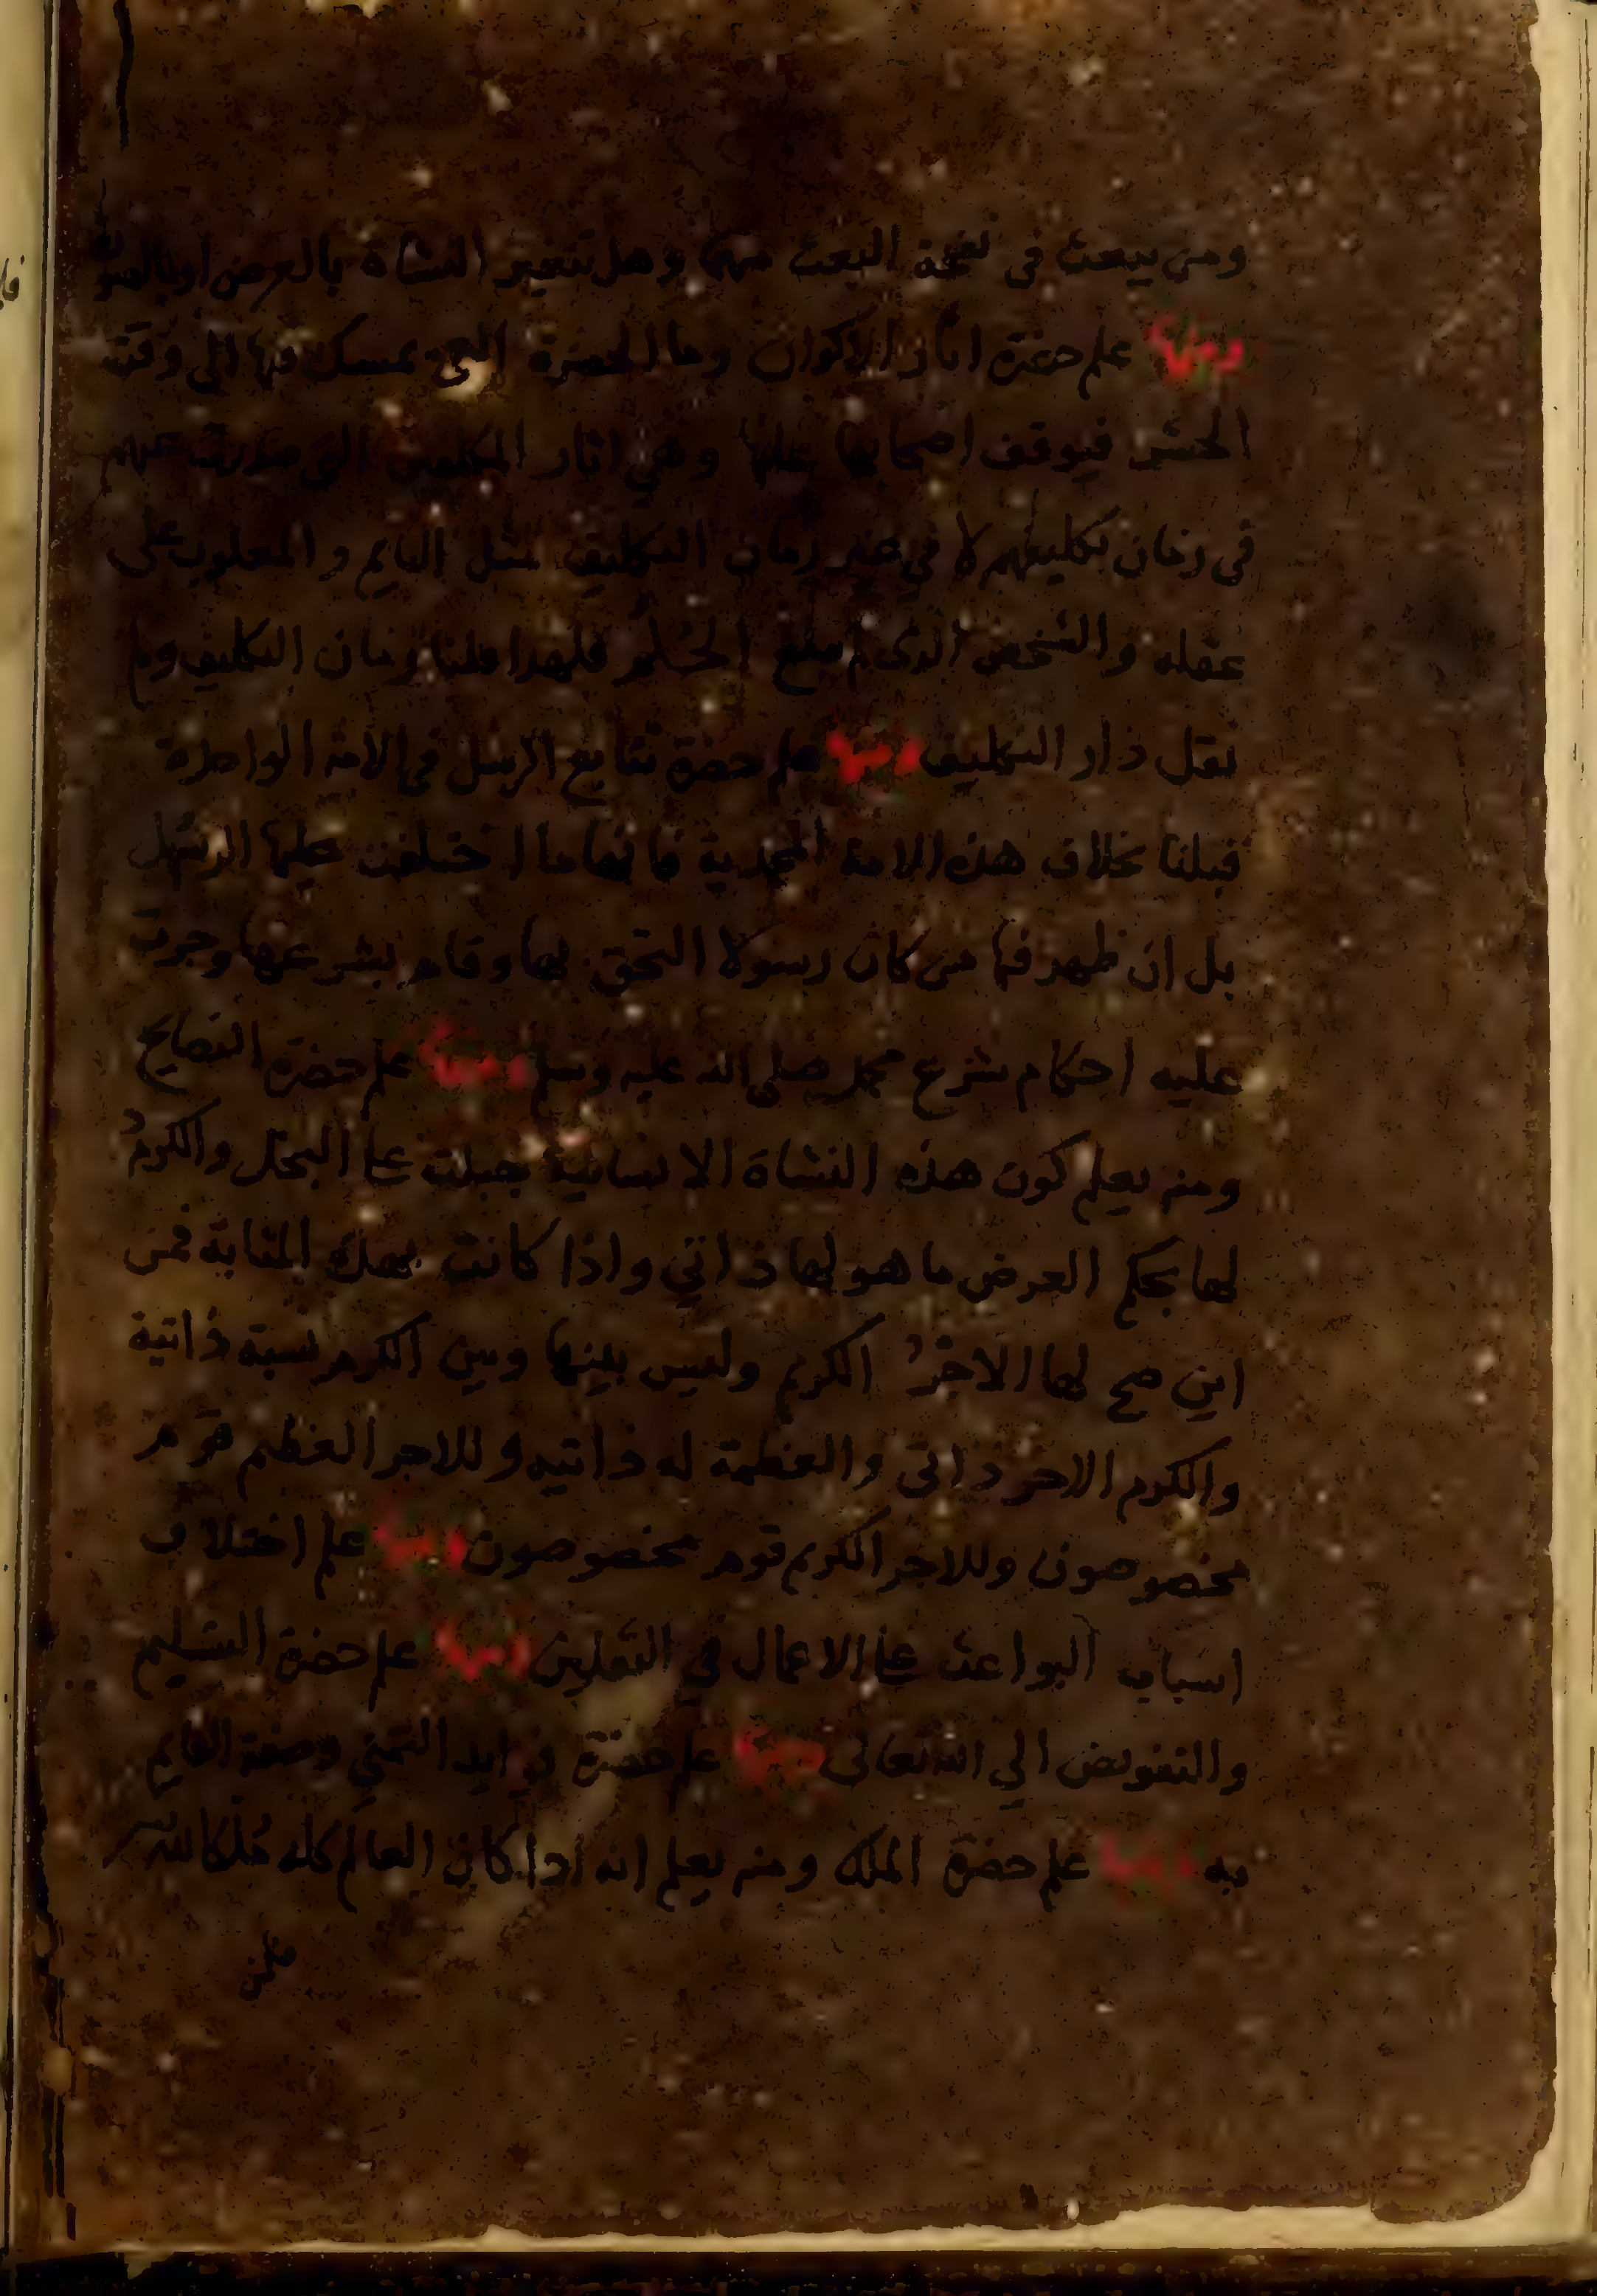 ومن يبعث في نفخة البعث منها وهل تتغير النشأة بالعرض او بالصورة
ومنها علم حضرة اثار الاكوان وما الحضرة التي تمسك فيها الى وقت
الحشر فيوقف اصحابها عليها وهي اثار المكلفين التي صدرت عنهم
في زمان تكليفهم لا في غير زمان التكليف مثل النايم والمغلوب على
عقله والشخص الذي لم يبلغ الحلم فلهذا قلنا زمان التكليف ولم
نقل دار التكليف ومنها علم حضرة تتابع الرسل في الامة الواحدة
قبلنا بخلاف هذه الامة المحمدية فانها ما اختلفت عليها الرسل
بل ان ظهر فيها من كان رسولا التحق بها وقام بشرعها وجرت
عليه احكام شرع محمد صلى الله عليه وسلم ومنها علم حضرة النصايح
ومنه يعلم كون هذه النشاة الانسانية جبلت على البخل والكرم
لها بحكم العرض ما هو لها ذاتي واذا كانت بهذه المثابة فمن
اين صح لها الاجر الكريم وليس بينها وبين الكرم نسبة ذاتية
والكرم الاجر ذاتي والعظمة له ذاتيه وللاجر العظيم قوم
مخصوصون وللاجر الكريم قوم مخصوصون ومنها علم اختلاف
اسباب البواعث على الاعمال في الثقلين ومنها علم حضرة التسليم
والتفويض الي الله تعالى ومنها علم حضرة زوايد التمني وصفة القايم
به ومنها علم حضرة الملك ومنه يعلم انه اذا كان العالم كله ملكا لله